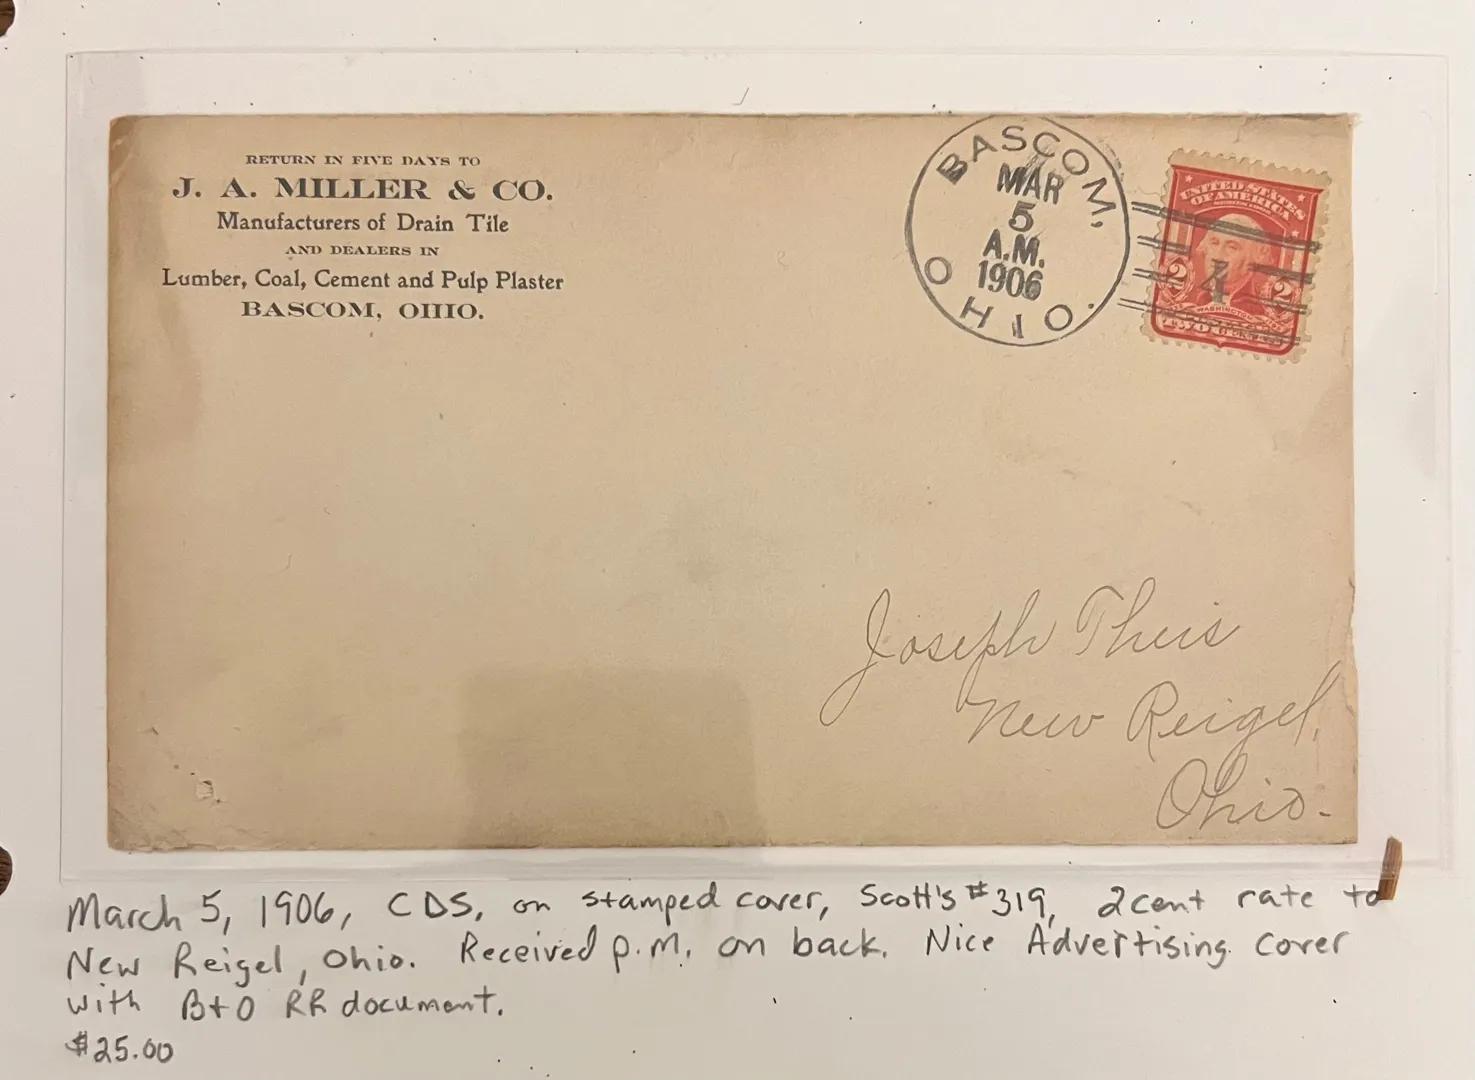 RETURN IN FIVE DAYS TO
J. A. MILLER & CO.
Manufacturers of Drain Tile
AND DEALERS IN
Lumber, Coal, Cement and Pulp Plaster
BASCOM, OHIO.
BASCOM,
MAR
5
A.M.
1906
OHIO.
UNITED STATES
OF AMERICA
2 4 2
WASHINGTON
TWO CENTS
Joseph Theis
New Reigel,
Ohio.
March 5, 1906, CDS, on stamped cover, Scott's #319, 2cent rate to
New Reigel, Ohio. Received p.m. on back. Nice Advertising cover
with B+O RR document.
$25.00